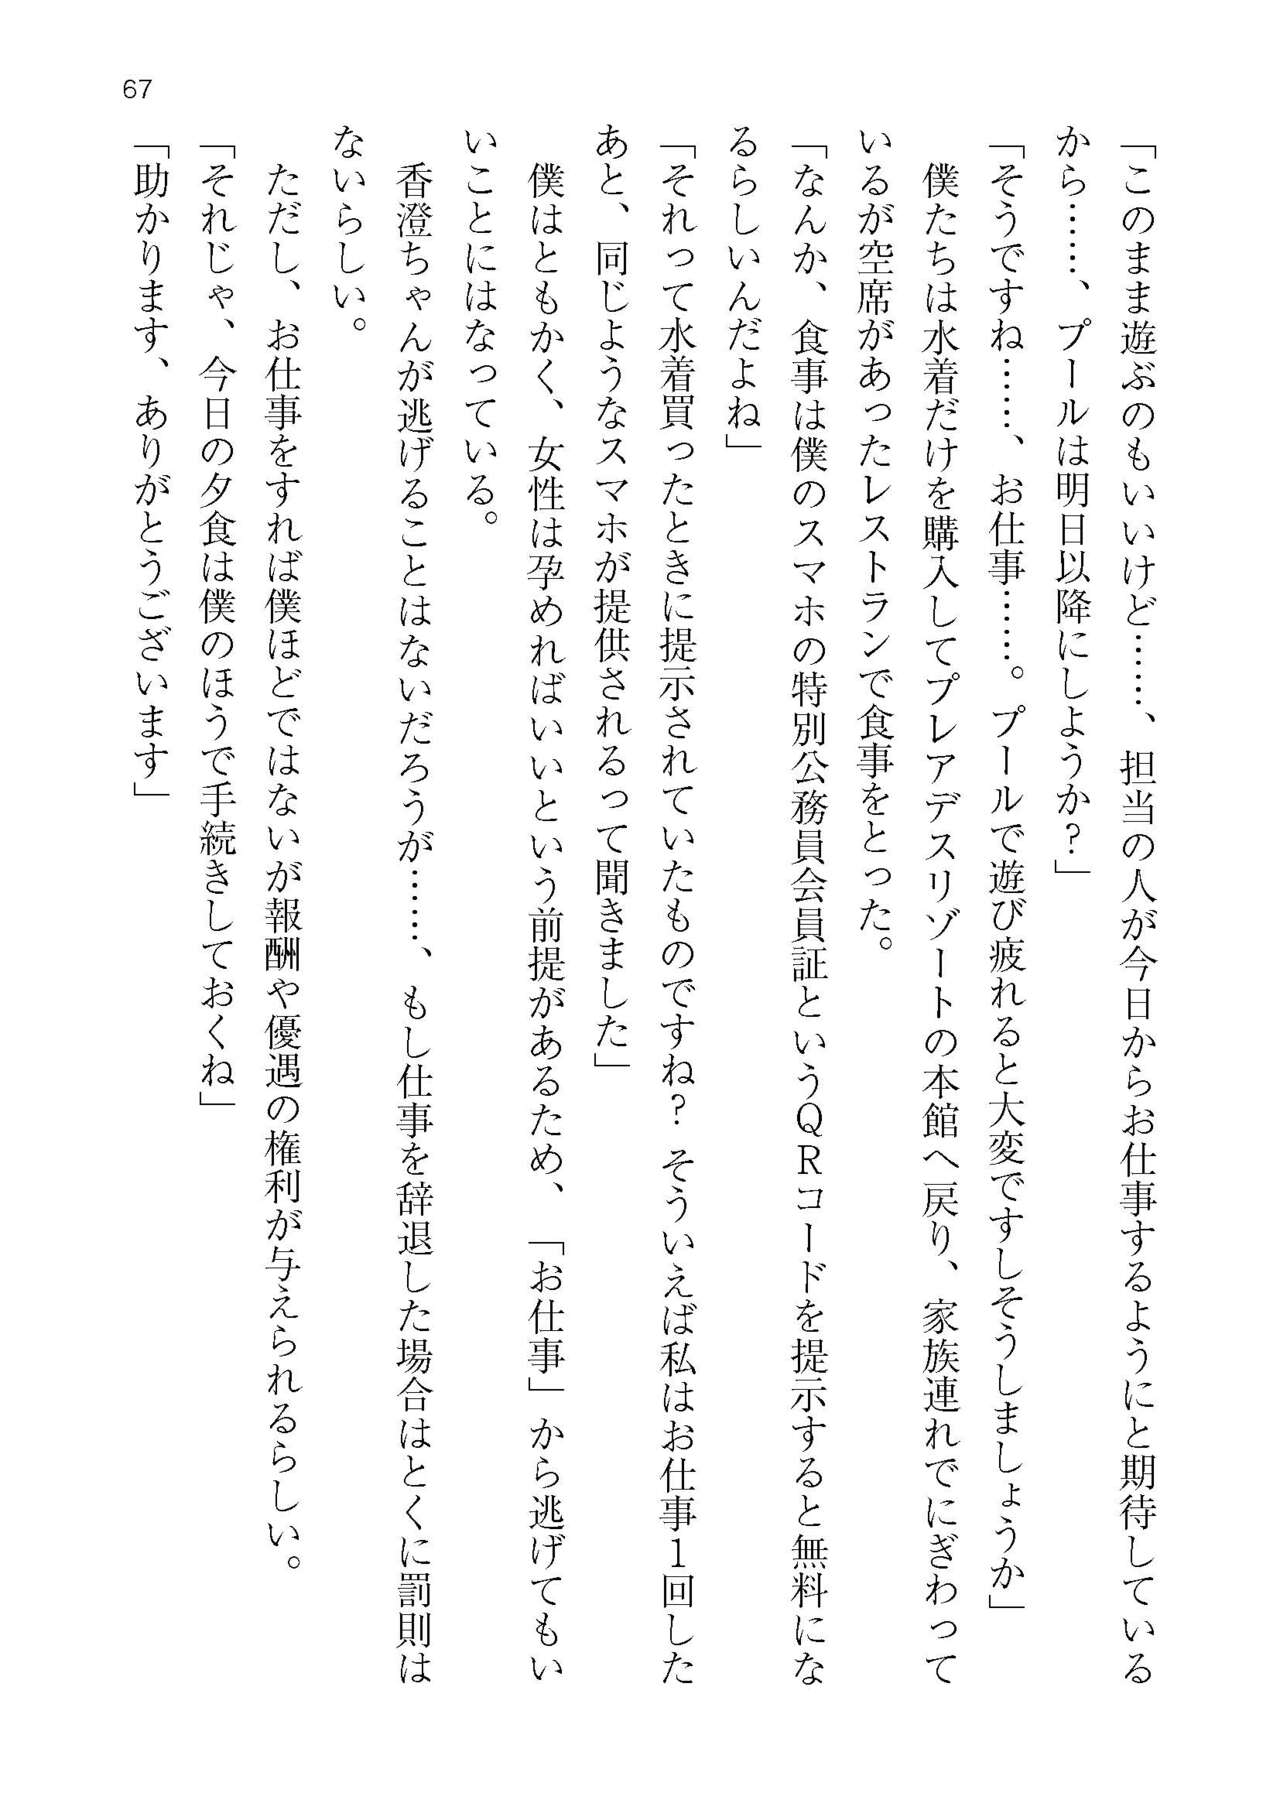 67
「このまま遊ぶのもいいけど……、担当の人が今日からお仕事するようにと期待している
から……、プールは明日以降にしようか？」
「そうですね……、お仕事……。プールで遊び疲れると大変ですしそうしましょうか」
　僕たちは水着だけを購入してプレアデスリゾートの本館へ戻り、家族連れでにぎわって
いるが空席があったレストランで食事をとった。
「なんか、食事は僕のスマホの特別公務員会員証というＱＲコードを提示すると無料にな
るらしいんだよね」
「それって水着買ったときに提示されていたものですね？　そういえば私はお仕事１回した
あと、同じようなスマホが提供されるって聞きました」
　僕はともかく、女性は孕めればいいという前提があるため、「お仕事」から逃げてもい
いことにはなっている。
　香澄ちゃんが逃げることはないだろうが……、もし仕事を辞退した場合はとくに罰則は
ないらしい。
　ただし、お仕事をすれば僕ほどではないが報酬や優遇の権利が与えられるらしい。
「それじゃ、今日の夕食は僕のほうで手続きしておくね」
「助かります、ありがとうございます」